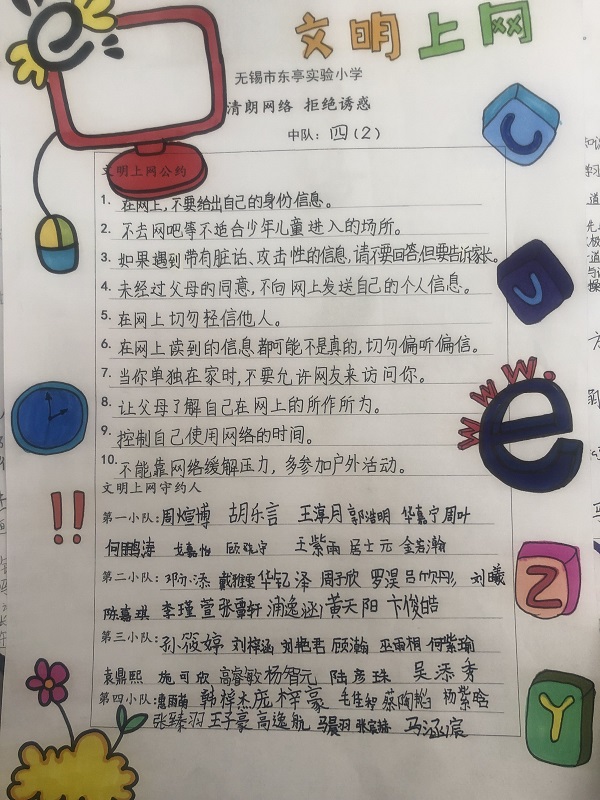 文明上网
无锡市东亭实验小学
清朗网络 拒绝诱惑
中队：四(2)
文明上网公约
1. 在网上，不要给出自己的身份信息。
2. 不去网吧等不适合少年儿童进入的场所。
3. 如果遇到带有脏话、攻击性的信息，请不要回答，但要告诉家长。
4. 未经过父母的同意，不向网上发送自己的个人信息。
5. 在网上切勿轻信他人。
6. 在网上读到的信息都可能不是真的，切勿偏听偏信。
7. 当你单独在家时，不要允许网友来访问你。
8. 让父母了解自己在网上的所作所为。
9. 控制自己使用网络的时间。
10. 不能靠网络缓解压力，多参加户外活动。
文明上网守约人
第一小队：周煊博 胡乐言 王淳月 郭浩明 华嘉宁 周叶
王紫雨 居士元 金若瀚
第二小队：戴雅雯 华钇泽 周子欣 罗淏 刘曦
陈嘉琪 李瑾萱 张蕈轩 浦逸涵 黄天阳 卞俊皓
第三小队：孙筱婷 刘梓涵 刘艳君 顾瀚 巫雨桐 何紫瑜
袁鼎熙 施可欣 高睿敏 杨智元 陆彦珠 吴添秀
第四小队：韩梓杰 庞梓豪 毛佳智 蔡陶韬 杨紫晗
张臻羽 王子豪 高逸航 马晨羽 张宸赫 马涵宸
www.
e
U
U
Z
Y
!!